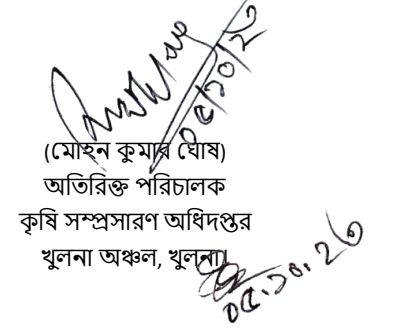 ০৫/১০/২৩
(মোহন কুমার ঘোষ)
অতিরিক্ত পরিচালক
কৃষি সম্প্রসারণ অধিদপ্তর
খুলনা অঞ্চল, খুলনা।
০৫.১০.২৩